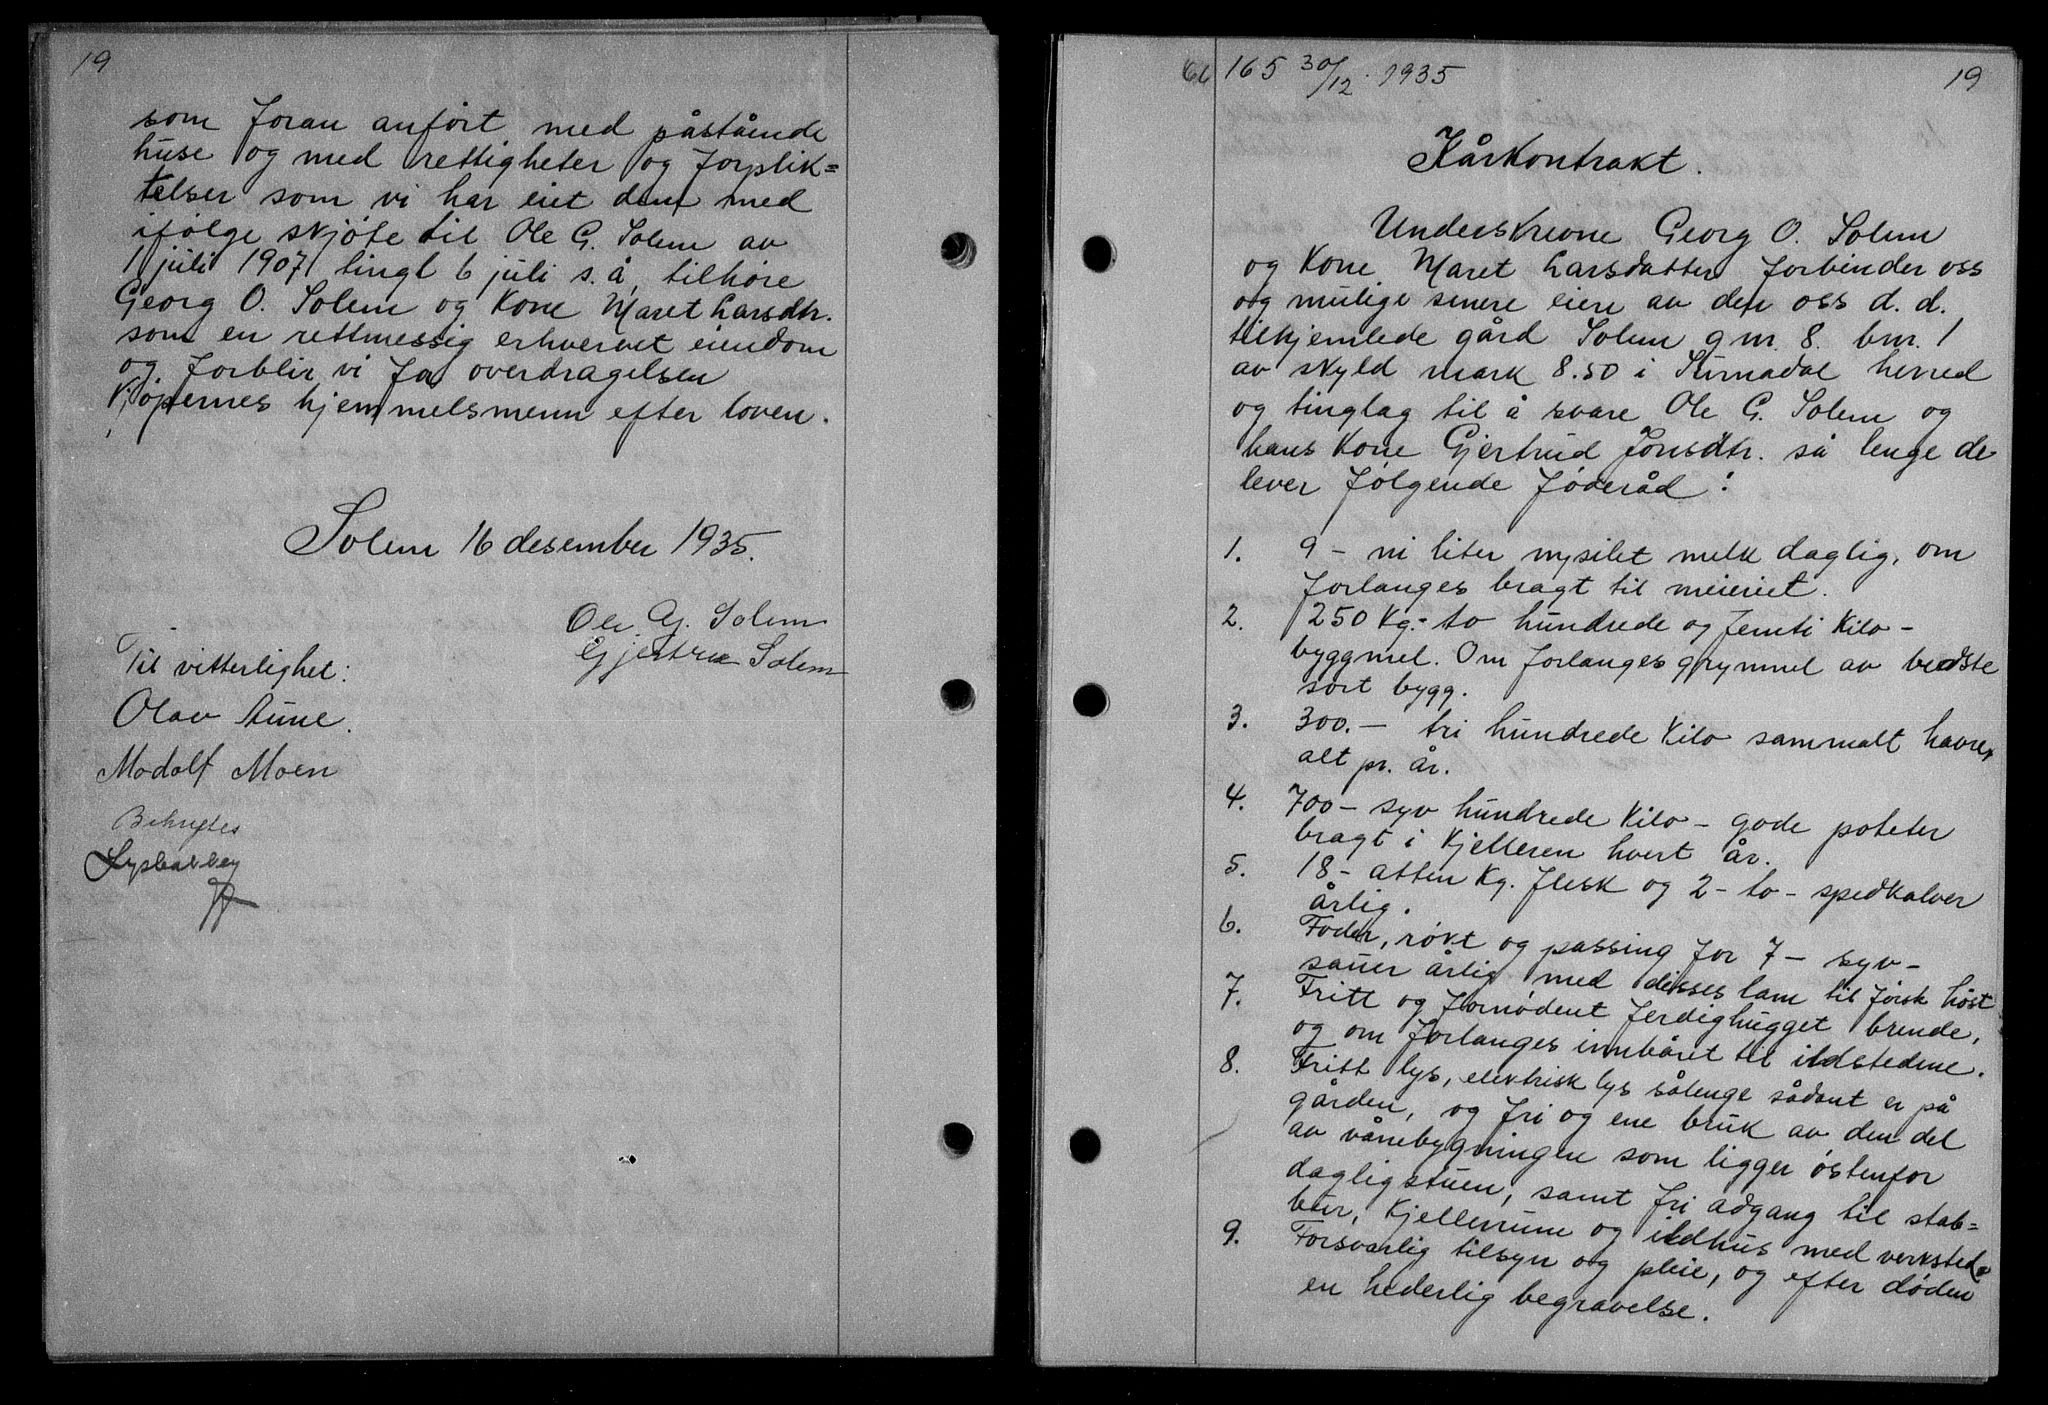 19
som foran anført med påstående
huse og med rettigheter og forplik=
telser som vi har eiet dem med
ifølge skjøte til Ole G. Solem av
1 juli 1907, tingl 6 juli s.å, tilhøre
Georg O. Solem og kone Maret Larsdtr.
som en rettmessig erhvervet eiendom
og forblir vi for overdragelsen
kjøpernes hjemmelsmenn efter loven.
Solem 16 desember 1935.
Ole G. Solem
Solem
Til vitterlighet:
Olav Aune.
Modolf Moen
165 30/12. 1935
19
Kårkontrakt.
Underskrevne Georg O. Solem
og kone Maret Larsdatter forbinder oss
og mulige senere eiere av den oss d. d.
tilskjemlede gård Solem gnr. 8. bnr. 1
av skyld mark 8.50 i Surnadal herred
og tinglag til å svare Ole G. Solem og
hans kone Gjertrud Jonsdtr. så lenge de
lever følgende føderåd:
1. 9 - ni liter nysilet melk daglig, om
forlanges bragt til meieriet.
2. 250 kg.- to hundrede og femti kilo -
byggmel. Om forlanges grynmel av bedste
sort bygg.
3. 300.- tri hundrede kilo sammalt havre,
alt pr. år.
4. 700 - syv hundrede kilo - gode poteter
bragt i kjelleren hvert år.
5. 18 - atten kg. flesk og 2 - to - spedkalver
årlig.
6. Foder, røkt og passing for 7 - syv -
sauer årlig med disses lam til førsk. høst
7. Fritt og fornødent ferdighugget brende,
og om forlanges innbåret til ildstedene.
8. Fritt lys, elektrisk lys sålenge sådant er på
gården, og fri og ene bruk av den del
av vånebygningen som ligger østenfor
dagligstuen, samt fri adgang til stab=
bur, kjellerrum og ildhus med verksted.
9. Forsvarlig tilsyn og pleie, og efter døden
en hederlig begravelse.